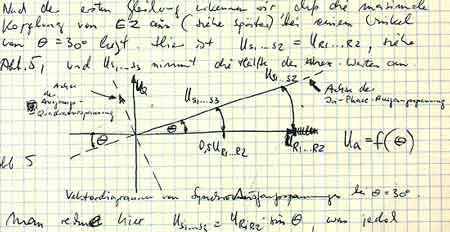 Nach der ersten Gleichung erkennen wir, daß die maximale
Kopplung von (siehe später) bei einem Winkel
von θ = 30° liegt. Hier ist U_S1...S2 = U_R1...R2, siehe
Abb. 5, und U_S1...S3 nimmt die Hälfte des Wertes an.
U_Q
U_S1...S2
Achse
der
Ausgangs-
Quadraturspannung
U_S1...S3
Achse
der
In-Phase-Ausgangsspannung
θ
θ
0,5 U_R1...R2
R1...R2
U_a = f(θ)
Abb 5
Vektordiagramm von Synchro Ausgangsspannungen bei θ = 30°.
Man hier U_S1...S3 = U_R1R2 sin θ, was jedoch